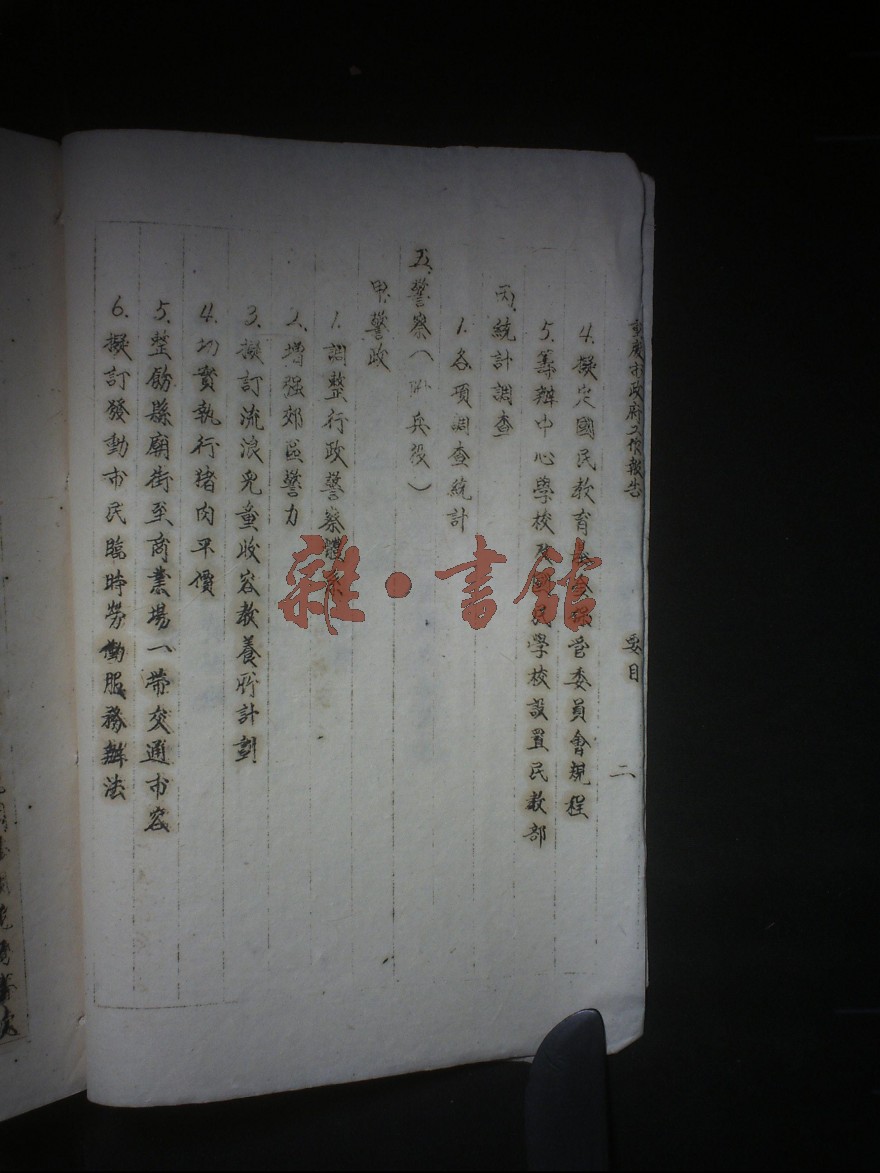 重慶市政府工作報告 要目 二
4. 擬定國民教育 管委員會規程
5. 籌辦中心學校及 學校設置民教部
丙、統計調查
1. 各項調查統計
五、警察（附兵役）
甲、警政
1. 調整行政警察體系
2. 增強郊區警力
3. 擬訂流浪兒童收容教養所計劃
4. 切實執行猪肉平價
5. 整飭縣廟街至商業場一帶交通市容
6. 擬訂發動市民臨時勞動服務辦法
雜·書館